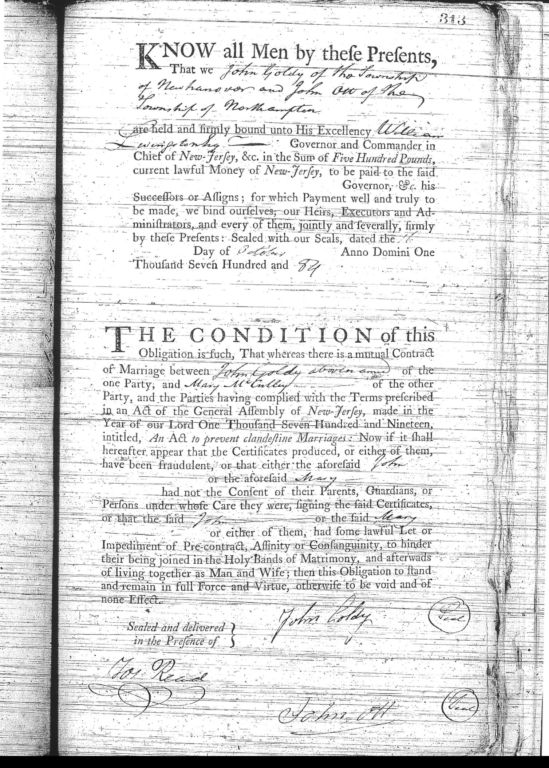 313
KNOW all Men by theſe Preſents,
That we John Goldy of the Township
of Newhanover and John Ott of the
Township of Northampton
are held and firmly bound unto His Excellency William
Livingston Esq Governor and Commander in
Chief of New-Jerſey, &c. in the Sum of Five Hundred Pounds,
current lawful Money of New-Jerſey, to be paid to the ſaid
Governor, &c. his
Succeſſors or Aſſigns; for which Payment well and truly to
be made, we bind ourſelves, our Heirs, Executors and Ad-
miniſtrators, and every of them, jointly and ſeverally, firmly
by theſe Preſents: Sealed with our Seals, dated the
Day of October Anno Domini One
Thouſand Seven Hundred and 84
THE CONDITION of this
Obligation is ſuch, That whereas there is a mutual Contract
of Marriage between John Goldy above named of the
one Party, and Mary McCulley of the other
Party, and the Parties having complied with the Terms preſcribed
in an Act of the General Aſſembly of New-Jerſey, made in the
Year of our Lord One Thouſand Seven Hundred and Nineteen,
intitled, An Act to prevent clandeſtine Marriages: Now if it ſhall
hereafter appear that the Certificates produced, or either of them,
have been fraudulent, or that either the aforeſaid John
or the aforeſaid Mary
had not the Conſent of their Parents, Guardians, or
Perſons under whoſe Care they were, ſigning the ſaid Certificates,
or that the ſaid John or the ſaid Mary
or either of them, had ſome lawful Let or
Impediment of Pre-contract, Affinity or Conſanguinity, to hinder
their being joined in the Holy Bands of Matrimony, and afterwads
of living together as Man and Wife; then this Obligation to ſtand
and remain in full Force and Virtue, otherwiſe to be void and of
none Effect.
Sealed and delivered
in the Preſence of
John Goldy Seal
Jos Read
John Ott Seal